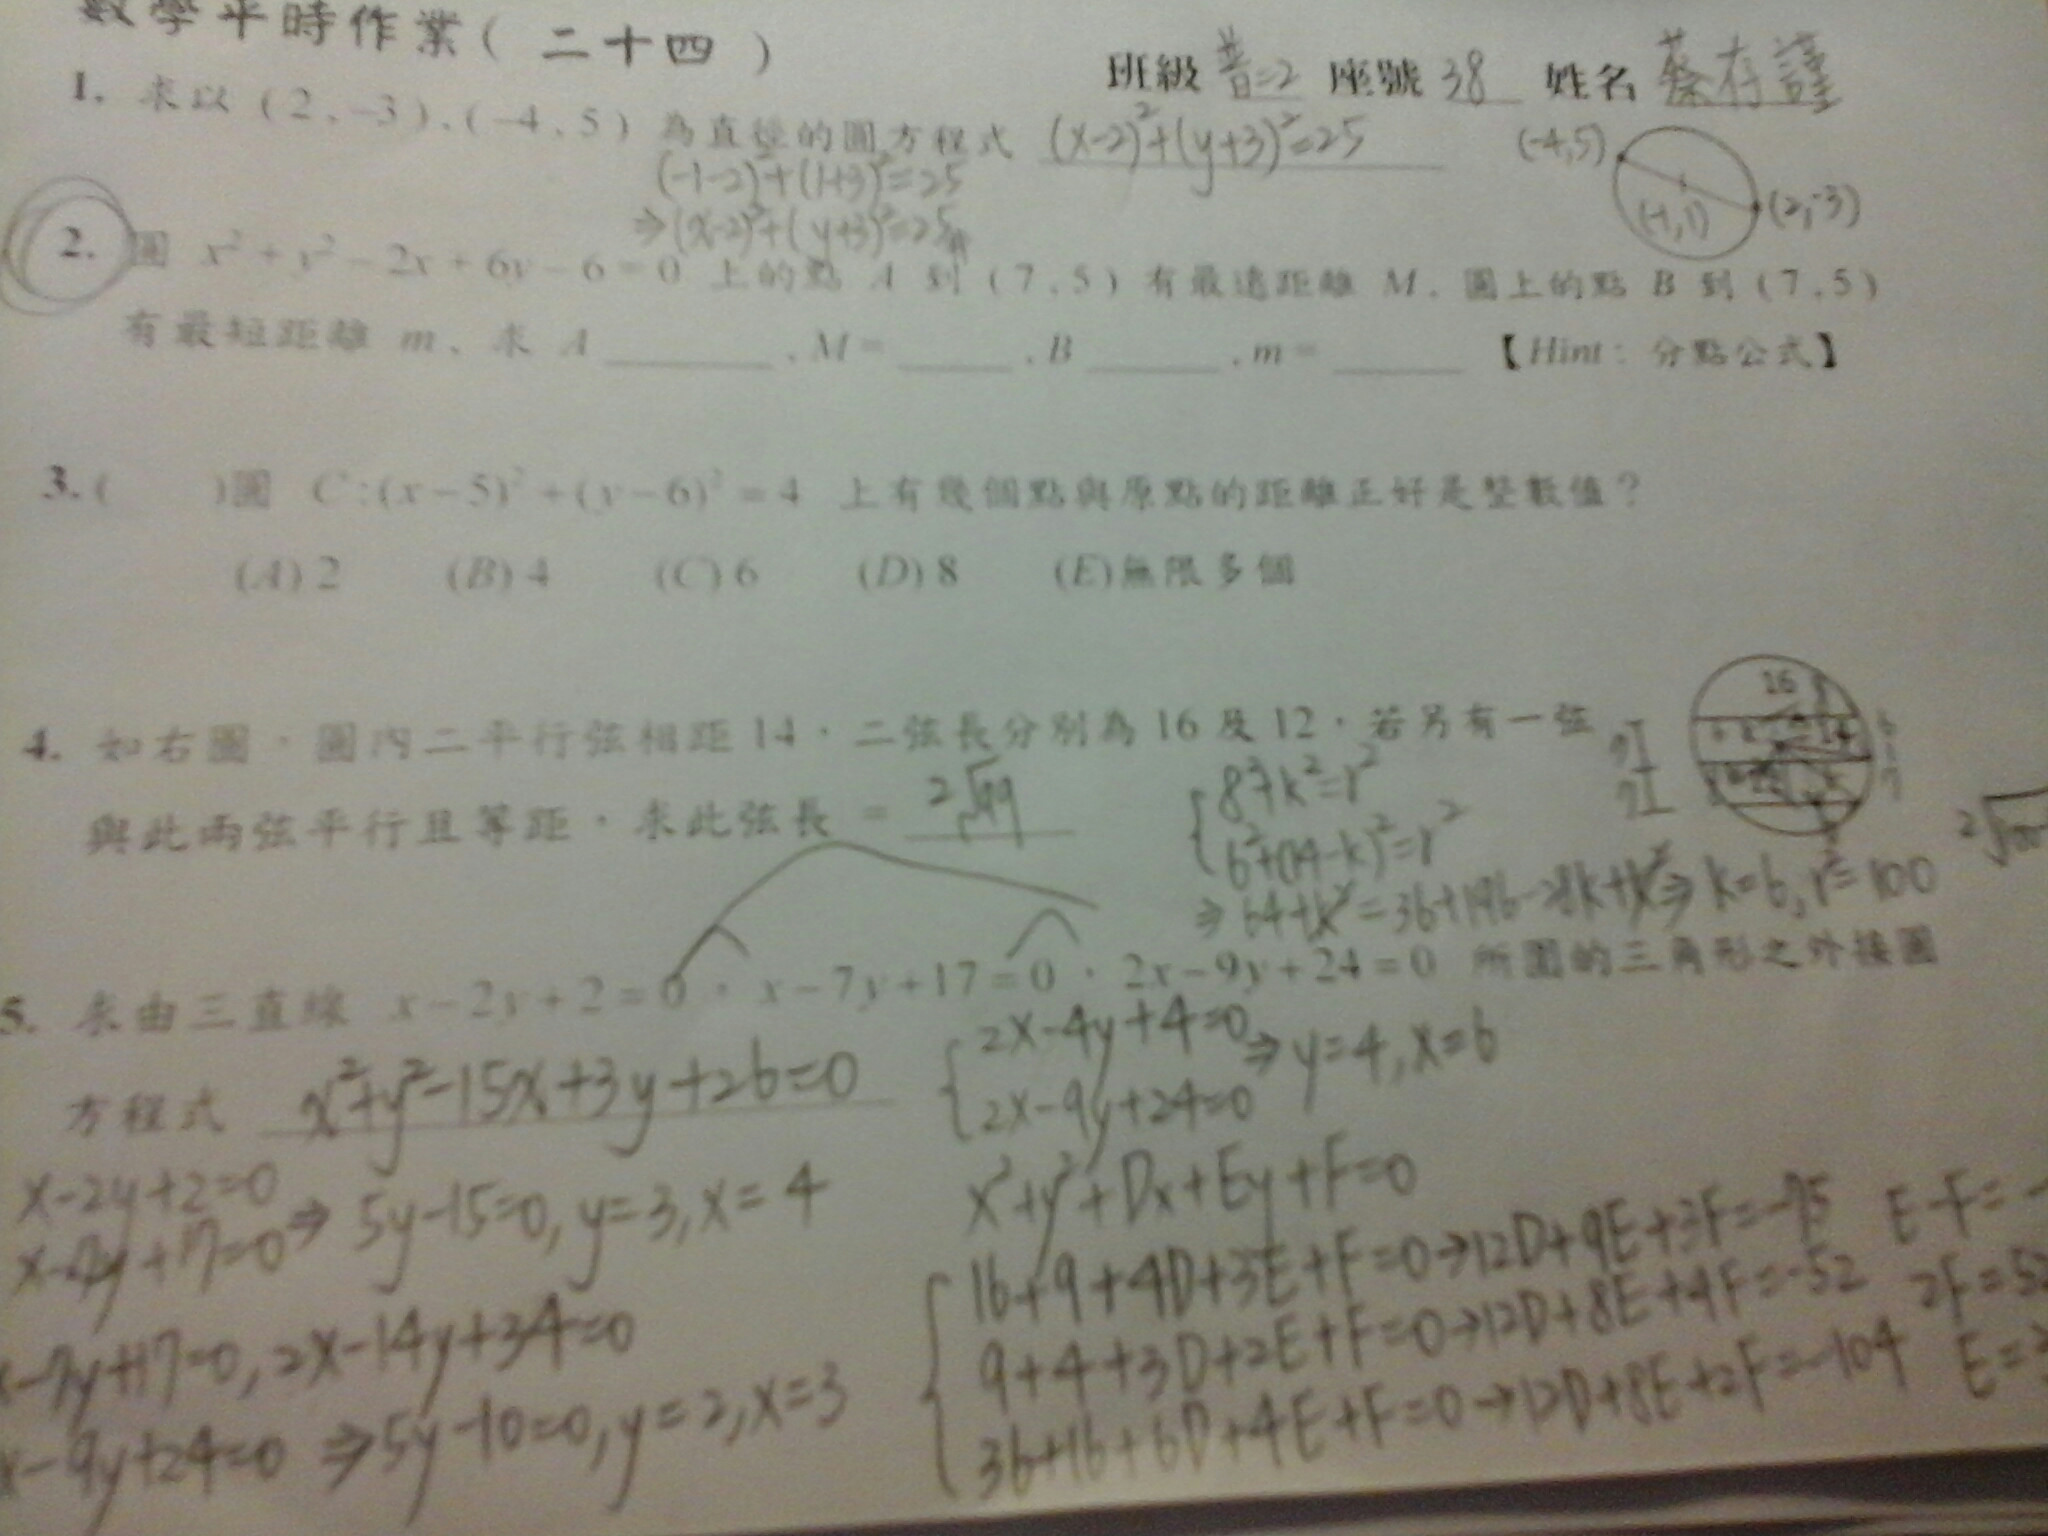 數學平時作業( 二十四 )
班級 普二2 座號 38 姓名 蔡存謹
1. 求以 (2,-3)、(-4,5) 為直徑的圓方程式 (x-2)²+(y+3)²=25
(-4,5)
(-1-2)²+(1+3)²=25
(-1,1)
(2,-3)
⇒(x-2)²+(y+3)²=25
2. 圓 x²+y²-2x+6y-6=0 上的點 A 到 (7,5) 有最遠距離 M,圓上的點 B 到 (7,5)
有最短距離 m,求 A ______,M= ______,B ______,m= ______ 【Hint: 分點公式】
3.( )圓 C:(x-5)²+(y-6)²=4 上有幾個點與原點的距離正好是整數值?
(A) 2 (B) 4 (C) 6 (D) 8 (E)無限多個
16
4. 如右圖,圓內二平行弦相距 14,二弦長分別為 16 及 12,若另有一弦
與此兩弦平行且等距,求此弦長 = 2√99
{8²+k²=r²
6²+(14-k)²=r²
⇒64+k²=36+196-28k+k²⇒k=6,r²=100
5. 求由三直線 x-2y+2=0,x-7y+17=0,2x-9y+24=0 所圍的三角形之外接圓
方程式 x²+y²-15x+3y+26=0
{2x-4y+4=0
2x-9y+24=0
⇒y=4,x=6
x-2y+2=0
x-7y+17=0
⇒ 5y-15=0,y=3,x=4
x-7y+17=0,2x-14y+34=0
x-9y+24=0 ⇒5y-10=0,y=2,x=3
x²+y²+Dx+Ey+F=0
{16+9+4D+3E+F=0→12D+9E+3F=-75 E-F=-
9+4+3D+2E+F=0→12D+8E+4F=-52 2F=52
36+16+6D+4E+F=0→12D+8E+2F=-104 E=3